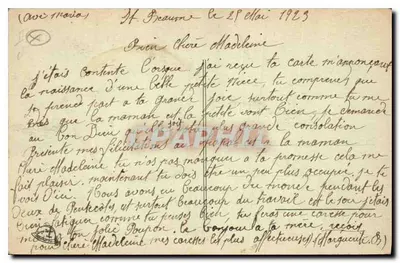 (avé maria) St Beaume le 25 Mai 1923
Bien chère Madeleine
J'étais contente lorsque j'ai reçu ta carte m'annonçant
la naissance d'une belle petite nièce, tu comprends que
je prends part a ta grande joie surtout comme tu me
dis que la maman et la petite vont bien, je demande
au bon Dieu plus grande consolation
Présente mes félicitations au et a la maman
chère Madeleine tu n'as pas manquer a ta promesse cela me
fait plaisir maintenant tu dois être un peu plus occupée, je te
vois d'ici. Nous avons eu beaucoup du monde pendant les
deux de Pentecôte et surtout beaucoup du travail et le soir j'étais
bien fatiguée comme tu penses bien, tu feras une caresse pour
moi a ton jolie poupon. le bonjour a ta mère, reçois
pour chère Madeleine mes caresses les plus affectueuses (Marguerite B)
CPARAMA